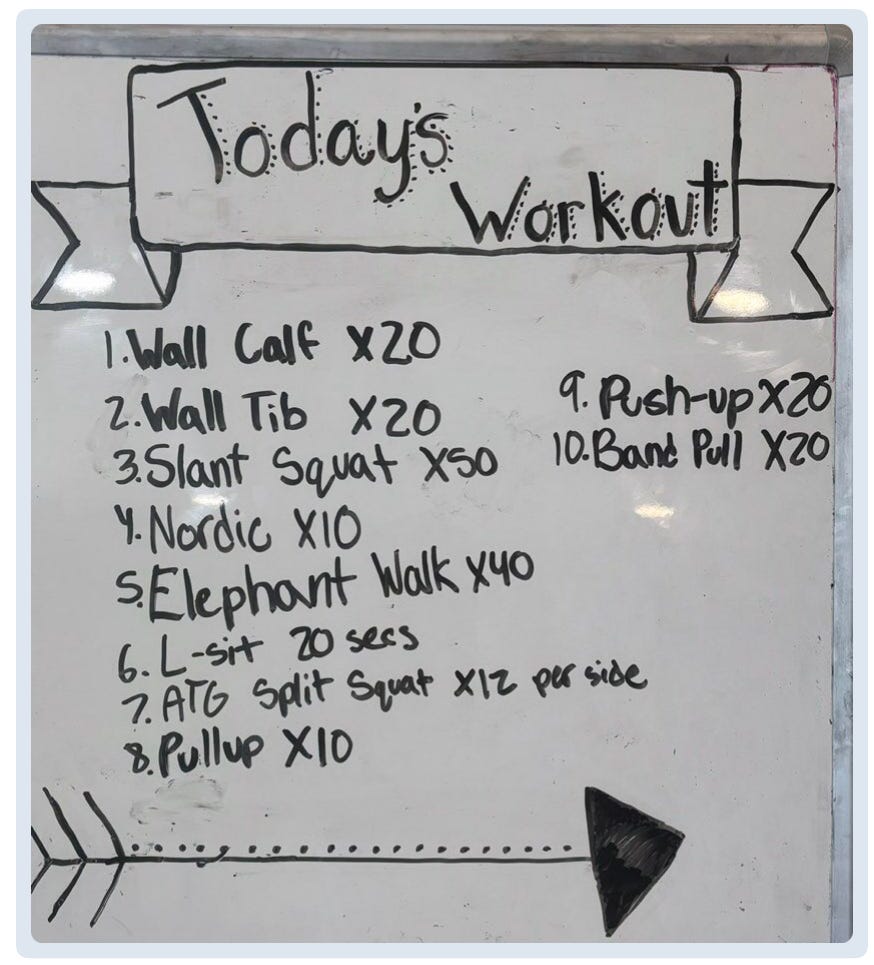 Today's
Workout
1. Wall Calf X20
2. Wall Tib X20
3. Slant Squat X50
4. Nordic X10
5. Elephant Walk X40
6. L-sit 20 secs
7. ATG Split Squat X12 per side
8. Pullup X10
9. Push-up X20
10. Band Pull X20